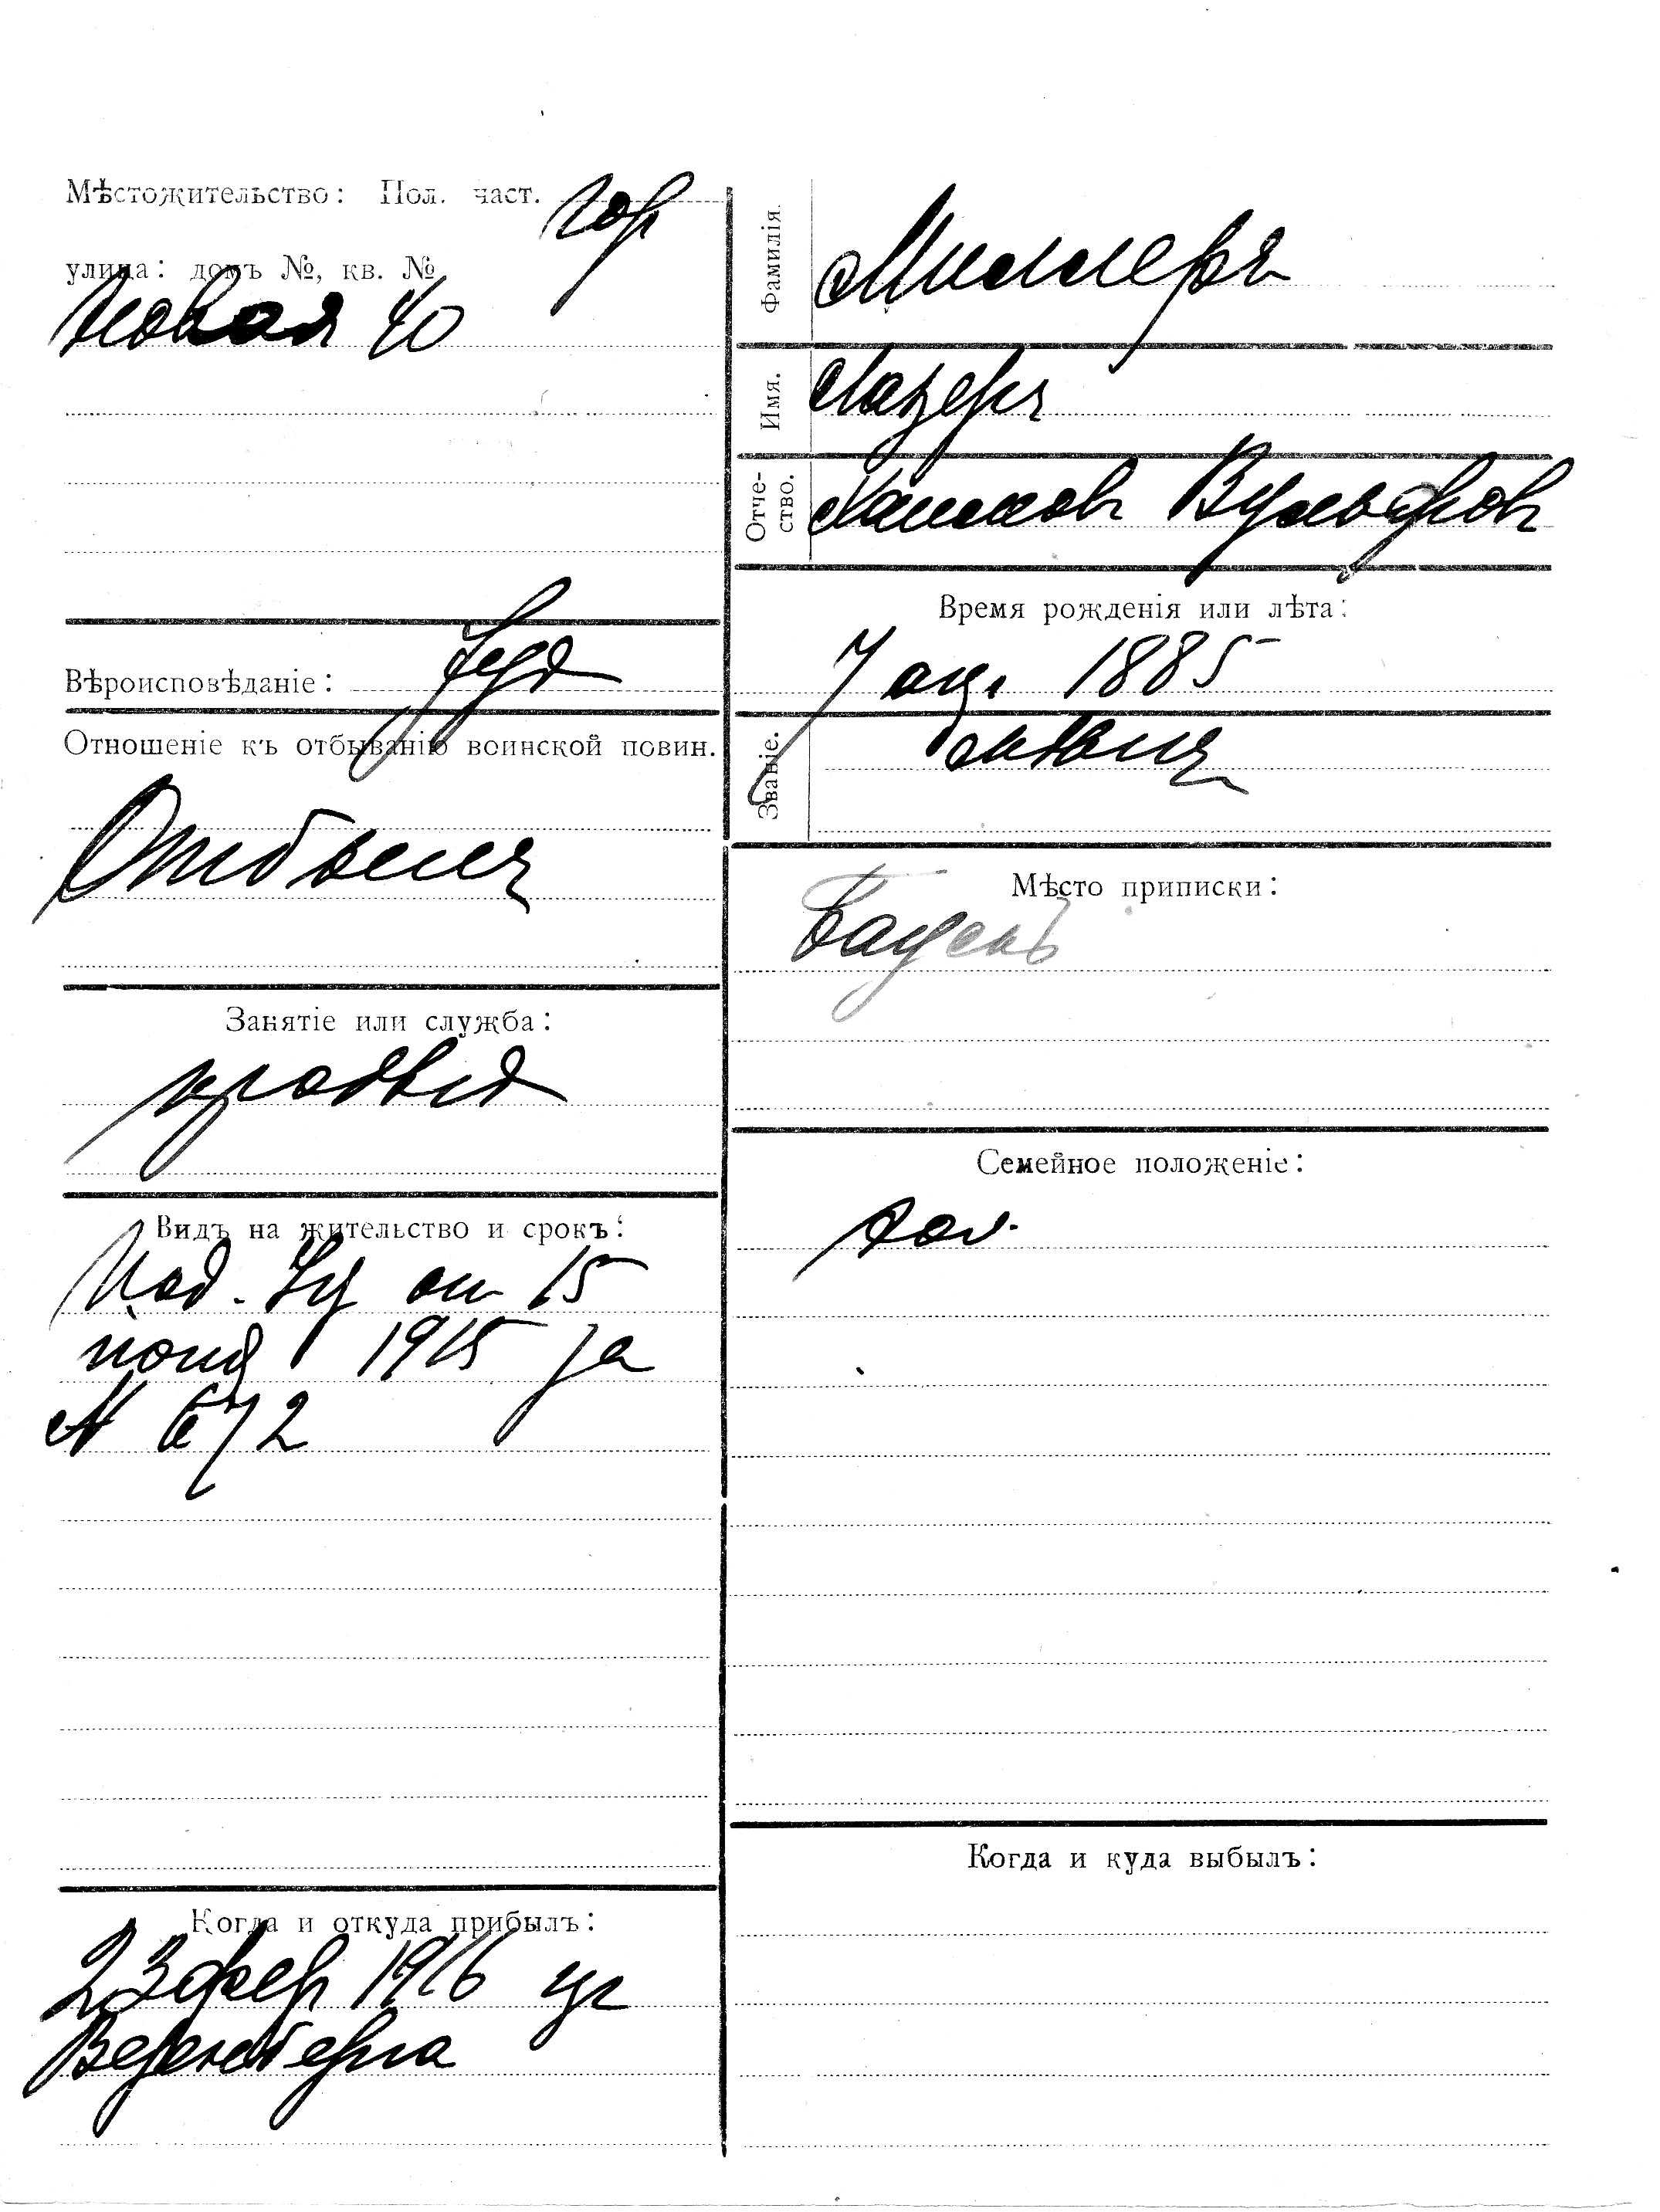 Мѣстожительство: Пол. част. гор
улица: домъ №, кв. №
Новая 40
Вѣроисповѣданіе: Іуд
Отношеніе къ отбыванію воинской повин.
Отбылъ
Занятіе или служба:
Видъ на жительство и срокъ:
от 15
1915 за
№ 672
Когда и откуда прибылъ:
23 февр 1916 из
Везенберга
Фамилія.
Миллеръ
Имя.
Лазерь
Отче-
ство.
Вульфов
Время рожденія или лѣта:
7 1885
Званіе.
Мѣсто приписки:
Баускъ
Семейное положеніе:
хол.
Когда и куда выбылъ: